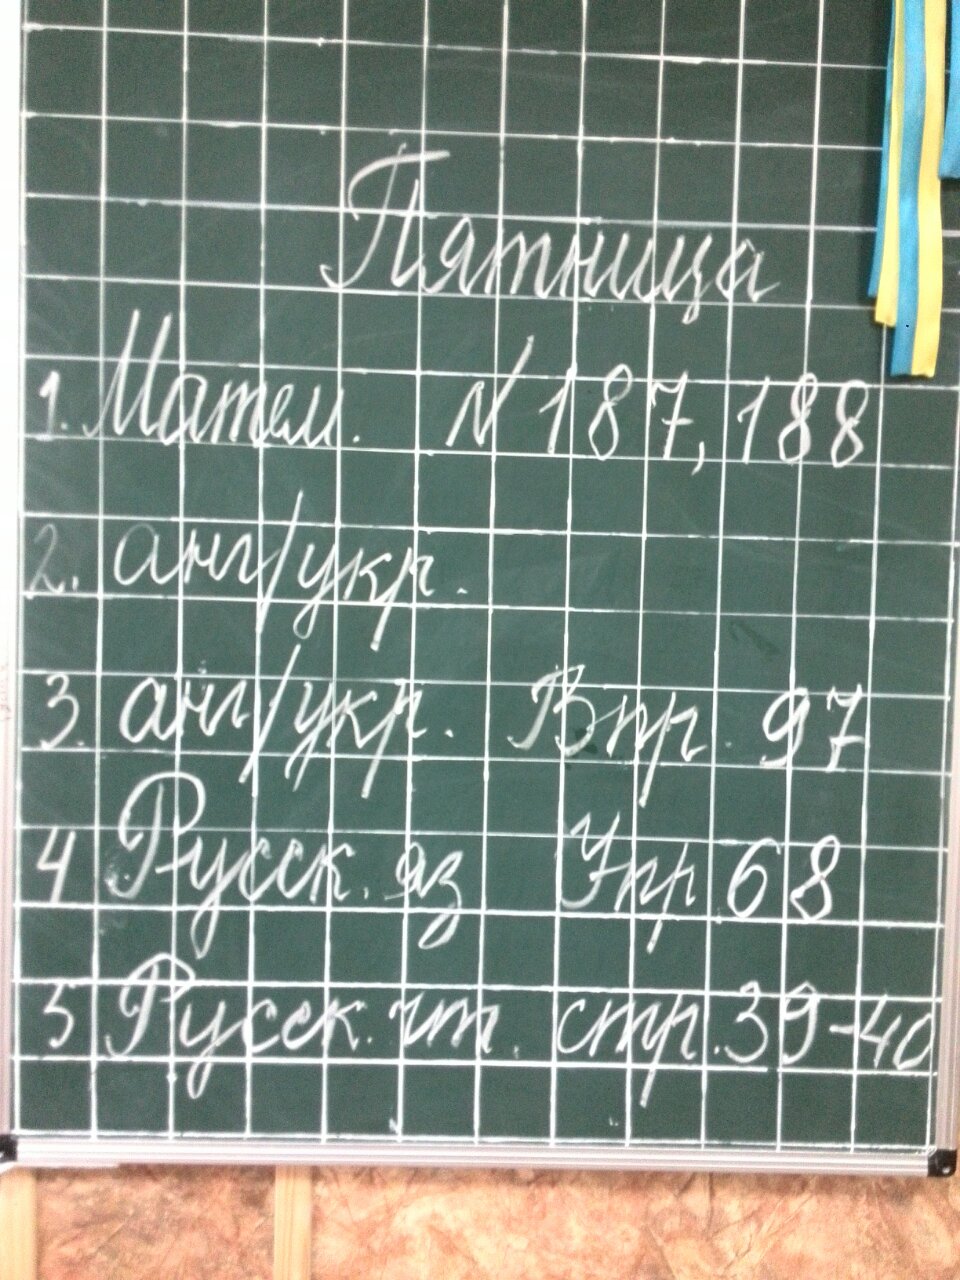 Пятница
1. Матем. N 187, 188
2. анг/укр.
3. анг/укр. Впр. 97
4 Русск. яз Упр 68
5 Русск. чт. стр. 39-40